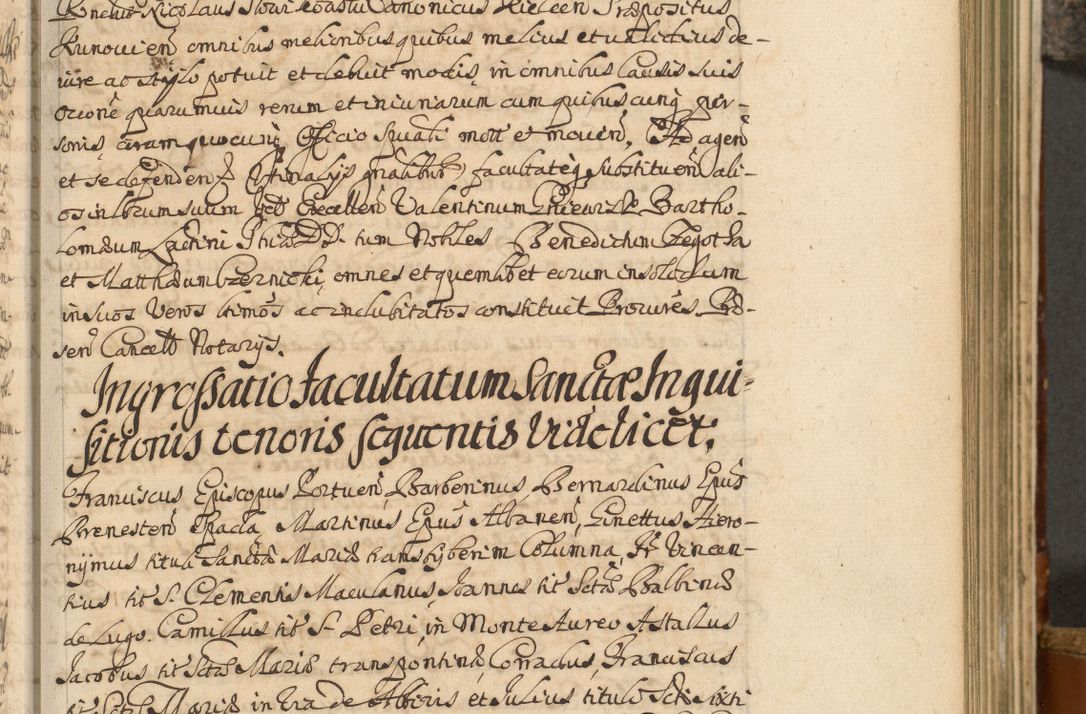 Nicolaus Canonicus Kielcen Præpositus
Kunovien omnibus melioribus quibus melius et validius de-
iure ac stylo potuit et debuit modis, in omnibus Causis suis
occone quarumuis rerum et iniuriarum cum quibuscunq per-
sonis, coram quocunq Officio spuali mott et mouen, Ad agen
et se defenden cum facultateq substituen ali-
os in locum suum Valentinum Bartho-
lomæum DD. tum Nobles Benedictum Zegotha
et Matthæum Czernicki, omnes et quemlibet eorum in solidum
in suos veros ltimos ac indubitatos constituit Procures. Præ-
sen Cancell Notarijs.
Ingrossatio facultatum Sanctæ Inqui-
sitionis tenoris sequentis videlicet;
Franciscus Episcopus Portuen, Barberinus, Bernardinus Epus
Prenesten Spada, Martinus Epus Albanen, Ginettus Hiero-
nymus tituli Sanctæ Mariæ transtyberim Columna, Fr Vincen-
tius tit S. Clementis Maculanus, Joannes tit Sctæ Balbinæ
de Lugo. Camillus tit S. Petri, in Monte Aureo Astallus
Jacobus tit Sctæ Mariæ transpontinæ Corradus, Franciscus
tit Sctæ Mariæ in Ara de Albitis et Julius tituli Scti Sixti